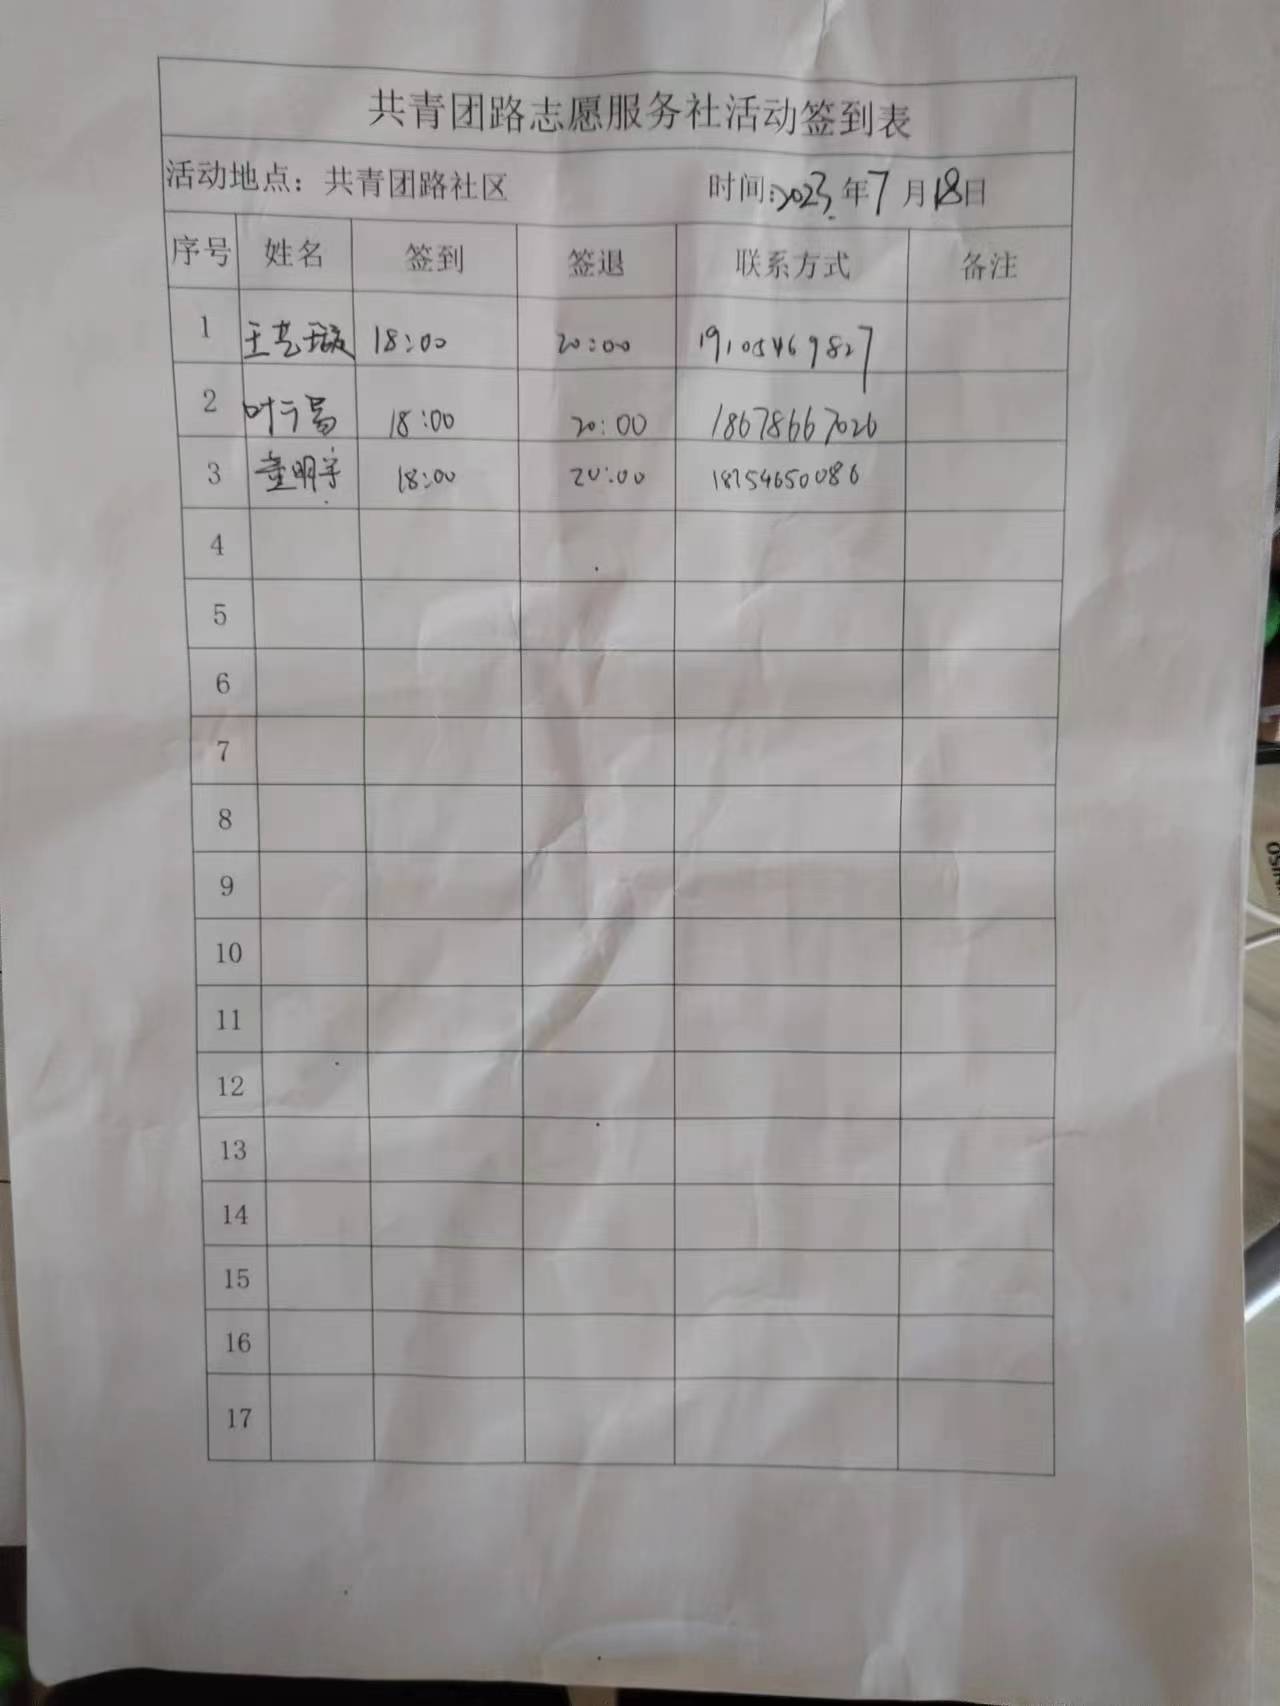 共青团路志愿服务社活动签到表
活动地点：共青团路社区 时间：2023年7月18日
序号 姓名 签到 签退 联系方式 备注
1 王艺璇 18:00 20:00 19105469827
2 叶子昂 18:00 20:00 18678667026
3 童明宇 18:00 20:00 18754650086
4
5
6
7
8
9
10
11
12
13
14
15
16
17